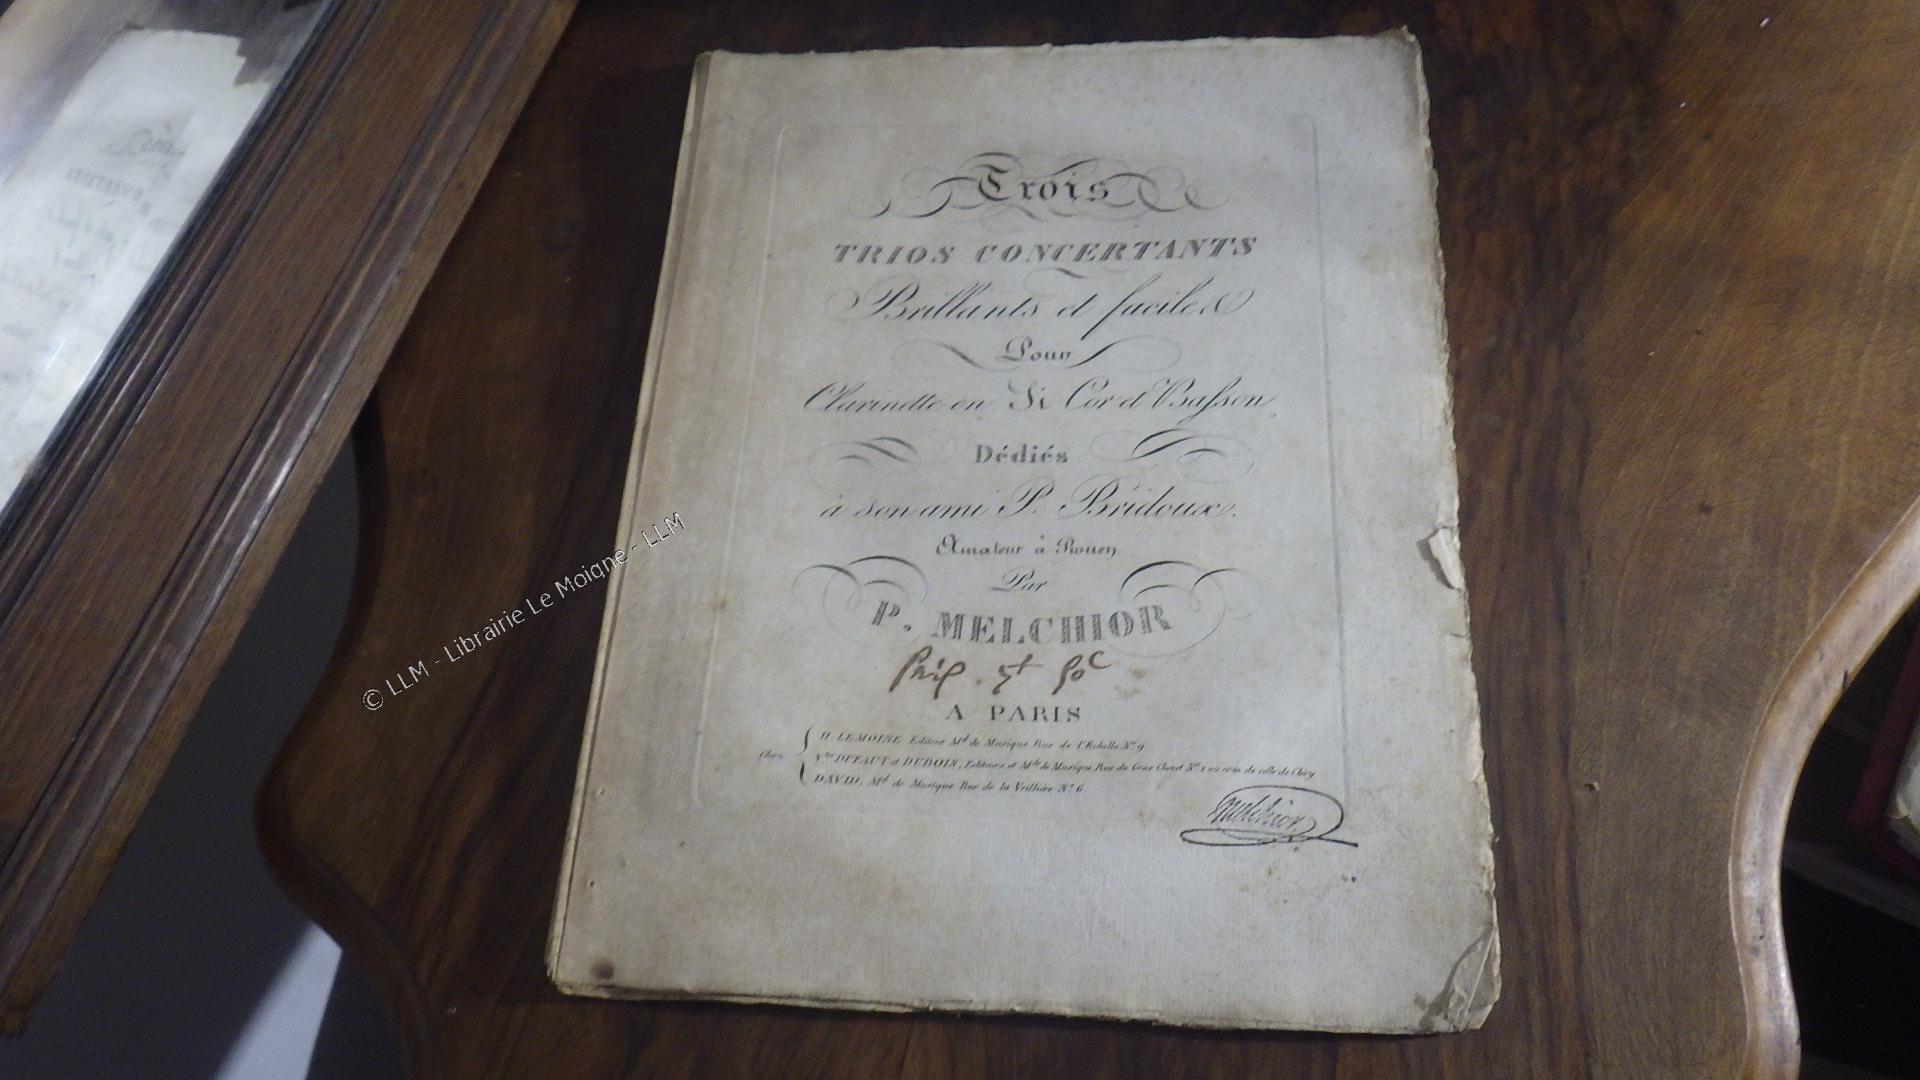 Trois
TRIOS CONCERTANTS
Brillants et faciles
Pour
Clarinette en Si Cor et Basson
Dédiés
à son ami P. Bridoux.
Amateur à Rouen
Par
P. MELCHIOR
Prix. 5f 50c
A PARIS
Chez
H. LEMOINE Editeur Md. de Musique Rue de l'Echelle No. 9
Vve. DUFAUT et DUBOIS, Editeurs et Mds. de Musique Rue du Gros Chenet No. 2 au coin de celle de Cléry
DAVID, Md. de Musique Rue de la Vrillière No. 6.
Melchior
© LLM - Librairie Le Moigne - LLM